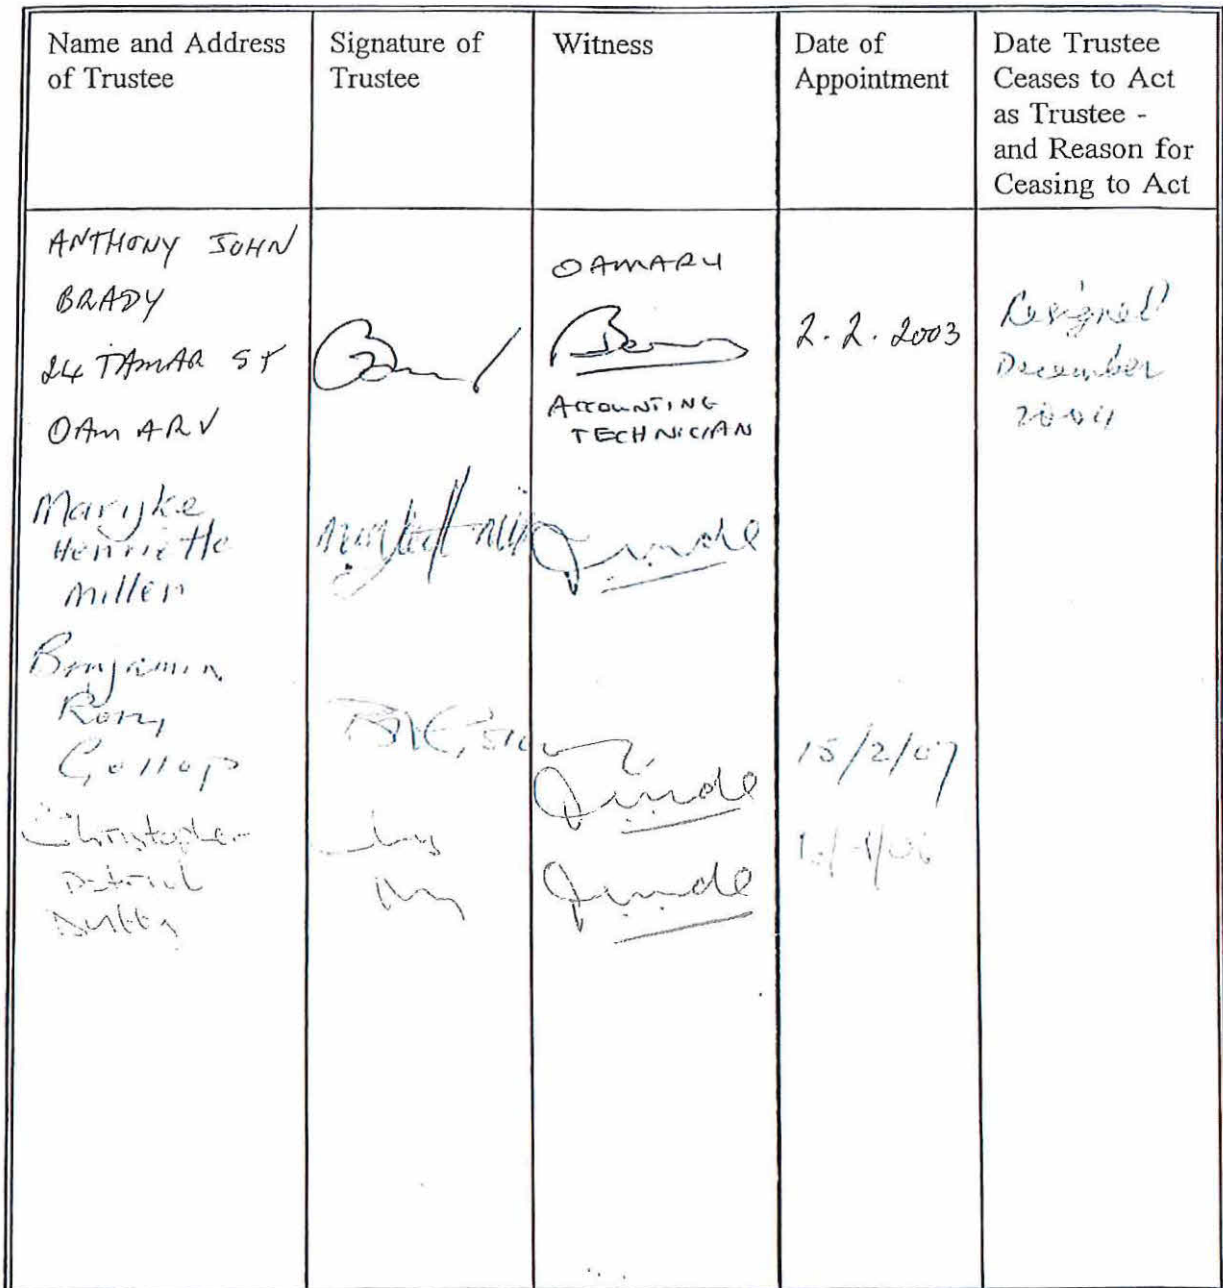 Name and Address
of Trustee
Signature of
Trustee
Witness
Date of
Appointment
Date Trustee
Ceases to Act
as Trustee -
and Reason for
Ceasing to Act
ANTHONY JOHN
BRADY
24 TAMAR ST
OAMARU
OAMARU
ACCOUNTING
TECHNICIAN
2.2.2003
Resigned
December
2004
Maryke
Henriette
Miller
Benjamin
Rory
Gollop
15/2/07
Christopher